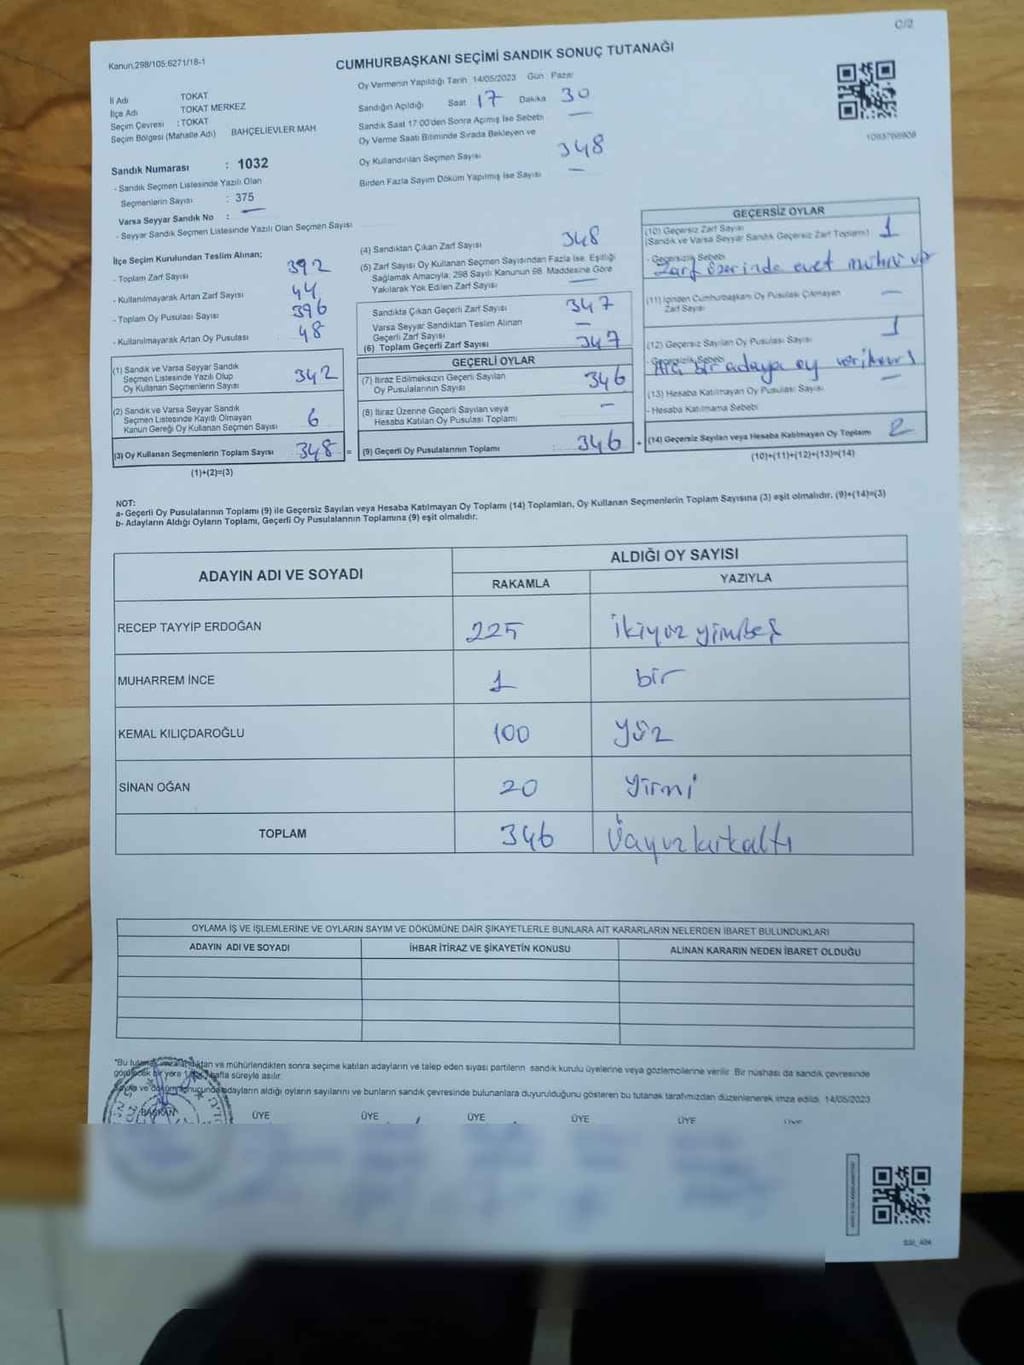 C/2
Kanun.298/105:6271/18-1
CUMHURBAŞKANI SEÇİMİ SANDIK SONUÇ TUTANAĞI
İl Adı TOKAT
İlçe Adı TOKAT MERKEZ
Seçim Çevresi : TOKAT
Seçim Bölgesi (Mahalle Adı) BAHÇELİEVLER MAH
Sandık Numarası : 1032
- Sandık Seçmen Listesinde Yazılı Olan
Seçmenlerin Sayısı : 375
Varsa Seyyar Sandık No : —
- Seyyar Sandık Seçmen Listesinde Yazılı Olan Seçmen Sayısı
Oy Vermenin Yapıldığı Tarih 14/05/2023 Gün Pazar
Sandığın Açıldığı Saat 17 Dakika 30
Sandık Saat 17:00'den Sonra Açmış İse Sebebi —
Oy Verme Saati Bitiminde Sırada Bekleyen ve
Oy Kullandırılan Seçmen Sayısı 348
Birden Fazla Sayım Döküm Yapılmış İse Sayısı —
İlçe Seçim Kurulundan Teslim Alınan;
- Toplam Zarf Sayısı 392
- Kullanılmayarak Artan Zarf Sayısı 44
- Toplam Oy Pusulası Sayısı 396
- Kullanılmayarak Artan Oy Pusulası 48
(1) Sandık ve Varsa Seyyar Sandık
Seçmen Listesinde Yazılı Olup
Oy Kullanan Seçmenlerin Sayısı 342
(2) Sandık ve Varsa Seyyar Sandık
Seçmen Listesinde Kayıtlı Olmayan
Kanun Gereği Oy Kullanan Seçmen Sayısı 6
(3) Oy Kullanan Seçmenlerin Toplam Sayısı 348 =
(1)+(2)=(3)
(4) Sandıktan Çıkan Zarf Sayısı 348
(5) Zarf Sayısı Oy Kullanan Seçmen Sayısından Fazla İse, Eşitliği
Sağlamak Amacıyla, 298 Sayılı Kanunun 98. Maddesine Göre
Yakılarak Yok Edilen Zarf Sayısı —
Sandıkta Çıkan Geçerli Zarf Sayısı 347
Varsa Seyyar Sandıktan Teslim Alınan
Geçerli Zarf Sayısı —
(6) Toplam Geçerli Zarf Sayısı 347
GEÇERLİ OYLAR
(7) İtiraz Edilmeksizin Geçerli Sayılan
Oy Pusulalarının Sayısı 346
(8) İtiraz Üzerine Geçerli Sayılan veya
Hesaba Katılan Oy Pusulası Toplamı —
(9) Geçerli Oy Pusulalarının Toplamı : 346 +
GEÇERSİZ OYLAR
(10) Geçersiz Zarf Sayısı 1
(Sandık ve Varsa Seyyar Sandık Geçersiz Zarf Toplamı)
- Geçersizlik Sebebi
Zarf üzerinde evet mührü var
(11) İçinden Cumhurbaşkanı Oy Pusulası Çıkmayan —
Zarf Sayısı
(12) Geçersiz Sayılan Oy Pusulası Sayısı 1
- Geçersizlik Sebebi
bir adaya oy
(13) Hesaba Katılmayan Oy Pusulası Sayısı —
- Hesaba Katılmama Sebebi
(14) Geçersiz Sayılan veya Hesaba Katılmayan Oy Toplamı 2
(10)+(11)+(12)+(13)=(14)
NOT:
a- Geçerli Oy Pusulalarının Toplamı (9) ile Geçersiz Sayılan veya Hesaba Katılmayan Oy Toplamı (14) Toplamları, Oy Kullanan Seçmenlerin Toplam Sayısına (3) eşit olmalıdır. (9)+(14)=(3)
b- Adayların Aldığı Oyların Toplamı, Geçerli Oy Pusulalarının Toplamına (9) eşit olmalıdır.
ADAYIN ADI VE SOYADI ALDIĞI OY SAYISI
RAKAMLA YAZIYLA
RECEP TAYYİP ERDOĞAN 225 ikiyüz yirmibeş
MUHARREM İNCE 1 bir
KEMAL KILIÇDAROĞLU 100 yüz
SİNAN OĞAN 20 Yirmi
TOPLAM 346 Üçyüzkırkaltı
OYLAMA İŞ VE İŞLEMLERİNE VE OYLARIN SAYIM VE DÖKÜMÜNE DAİR ŞİKAYETLERLE BUNLARA AİT KARARLARIN NELERDEN İBARET BULUNDUKLARI
ADAYIN ADI VE SOYADI İHBAR İTİRAZ VE ŞİKAYETİN KONUSU ALINAN KARARIN NEDEN İBARET OLDUĞU
"Bu ve mühürlendikten sonra seçime katılan adayların ve talep eden siyasi partilerin sandık kurulu üyelerine veya gözlemcilerine verilir. Bir nüshası da sandık çevresinde
bir yere hafta süreyle asılır.
adayların aldığı oyların sayılarını ve bunların sandık çevresinde bulunanlara duyurulduğunu gösteren bu tutanak tarafımızdan düzenlenerek imza edildi. 14/05/2023
BAŞKAN ÜYE ÜYE ÜYE ÜYE ÜYE